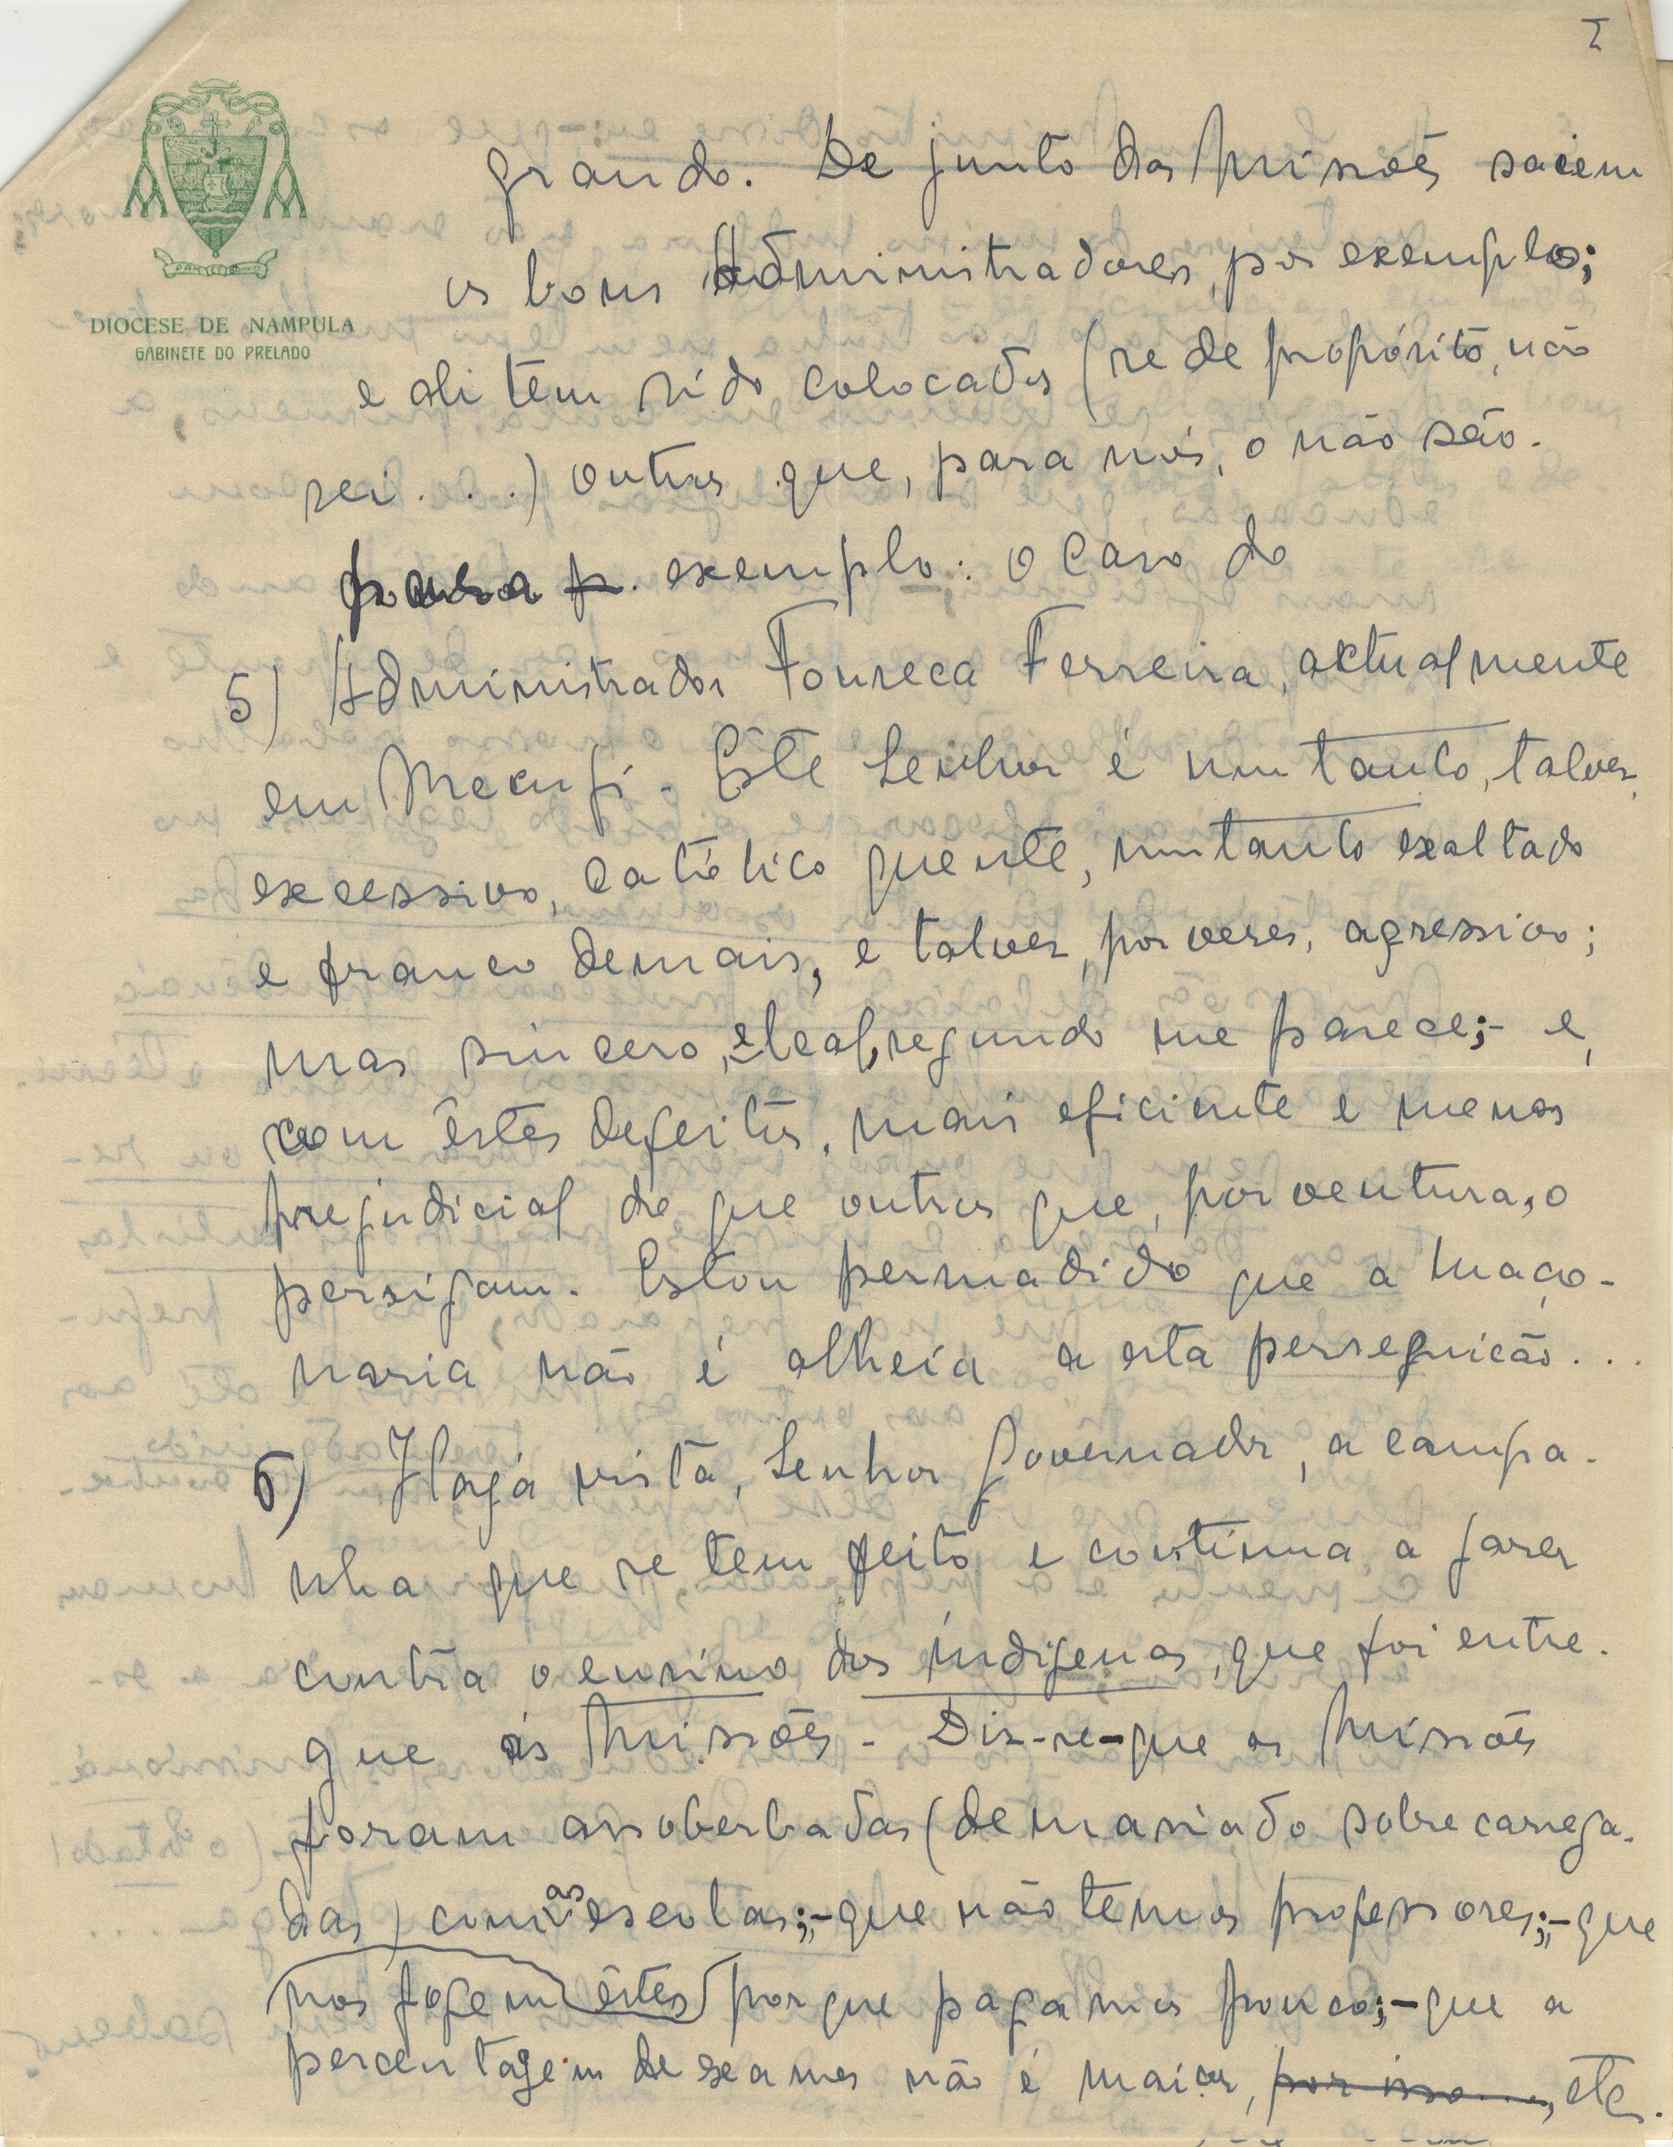 I
DIOCESE DE NAMPULA
GABINETE DO PRELADO
grando. De junto das Missões saiem
os bons Administradores, por exemplo;
e ali têm sido colocados (se de propósito, não
sei...) outros que, para nós, o não são.
p. exemplo: o caso do
5) Administrador Fonseca Ferreira, actualmente
em Mecufi. Êste Senhor é um tanto, talvez,
excessivo, católico quente, um tanto exaltado
e franco demais, e talvez, por vezes, agressivo;
mas sincero, e leal, segundo me parece;- e,
com êstes defeitos, mais eficiente e menos
prejudicial do que outros que, porventura, o
persigam. Estou persuadido que a Maço-
naria não é alheia a esta perseguição...
6) Haja vista, Senhor Governador, a campa-
nha que se tem feito e continua a fazer
contra o ensino dos indígenas, que foi entre-
gue às Missões. Diz-se-que as Missões
foram assoberbadas (demasiado sobrecarrega-
das) com as escolas;-que não temos professores;-que
nos fogem êstes porque pagamos pouco;-que a
percentagem de exames não é maior, por isso..., etc.